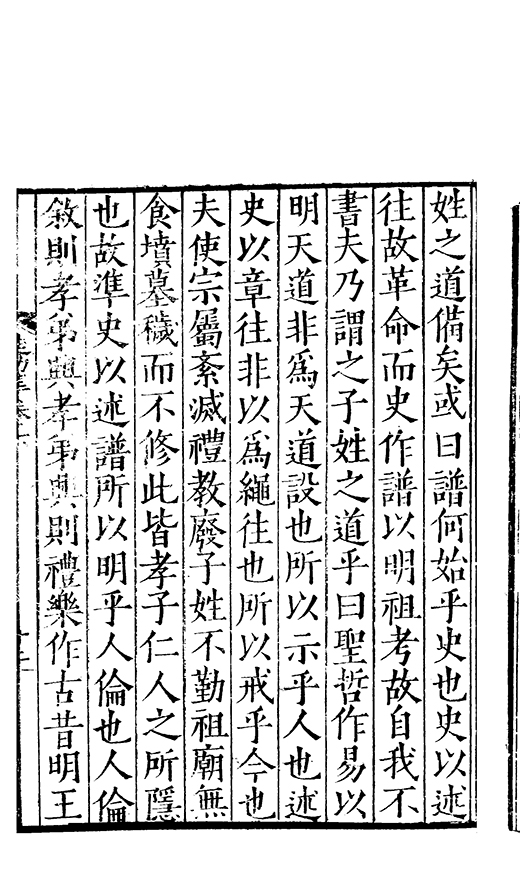 姓之道備矣或曰譜何始乎史也史以述
往故革命而史作譜以明祖考故自我不
書夫乃謂之子姓之道乎曰聖哲作易以
明天道非爲天道設也所以示乎人也述
史以章往非以爲繩往也所以戒乎今也
夫使宗屬紊滅禮教廢子姓不勤祖廟無
食墳墓穢而不修此皆孝子仁人之所隱
也故準史以述譜所以明乎人倫也人倫
敘則孝弟興孝弟興則禮樂作古昔明王